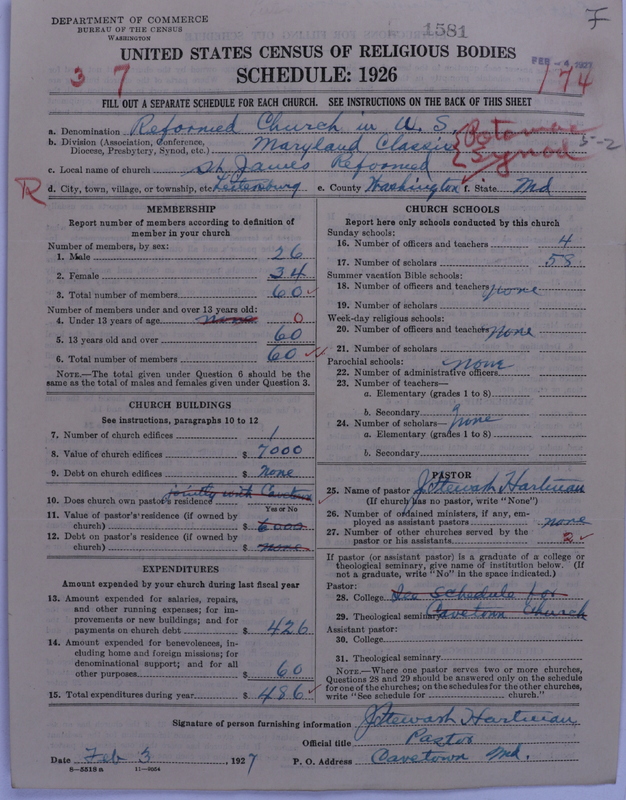 DEPARTMENT OF COMMERCE
BUREAU OF THE CENSUS
WASHINGTON
1581
F
UNITED STATES CENSUS OF RELIGIOUS BODIES
SCHEDULE: 1926
3 7
174
FILL OUT A SEPARATE SCHEDULE FOR EACH CHURCH. SEE INSTRUCTIONS ON THE BACK OF THIS SHEET
a. Denomination Reformed Church in U. S.
b. Division (Association, Conference, Diocese, Presbytery, Synod, etc.) Maryland Classis
Potomac Synod
5-2
c. Local name of church St. James Reformed
R
d. City, town, village, or township, etc. Leitersburg e. County Washington f. State Md
MEMBERSHIP
Report number of members according to definition of
member in your church
Number of members, by sex:
1. Male 26
2. Female 34
3. Total number of members 60
Number of members under and over 13 years old:
4. Under 13 years of age none 0
5. 13 years old and over 60
6. Total number of members 60
NOTE.—The total given under Question 6 should be the
same as the total of males and females given under Question 3.
CHURCH BUILDINGS
See instructions, paragraphs 10 to 12
7. Number of church edifices 1
8. Value of church edifices $ 7000
9. Debt on church edifices $ none
10. Does church own pastor's residence jointly with Cavetown
Yes or No
11. Value of pastor's residence (if owned by
church) $ 6000
12. Debt on pastor's residence (if owned by
church) $ none
EXPENDITURES
Amount expended by your church during last fiscal year
13. Amount expended for salaries, repairs,
and other running expenses; for im-
provements or new buildings; and for
payments on church debt $ 426
14. Amount expended for benevolences, in-
cluding home and foreign missions; for
denominational support; and for all
other purposes $ 60
15. Total expenditures during year $ 486
CHURCH SCHOOLS
Report here only schools conducted by this church
Sunday schools:
16. Number of officers and teachers 4
17. Number of scholars 58
Summer vacation Bible schools:
18. Number of officers and teachers none
19. Number of scholars
Week-day religious schools:
20. Number of officers and teachers none
21. Number of scholars
Parochial schools: none
22. Number of administrative officers
23. Number of teachers—
a. Elementary (grades 1 to 8)
b. Secondary
24. Number of scholars— none
a. Elementary (grades 1 to 8)
b. Secondary
PASTOR
25. Name of pastor J. Stewart Hartman
(If church has no pastor, write "None")
26. Number of ordained ministers, if any, em-
ployed as assistant pastors none
27. Number of other churches served by the
pastor or his assistants 2
If pastor (or assistant pastor) is a graduate of a college or
theological seminary, give name of institution below. (If
not a graduate, write "No" in the space indicated.)
Pastor:
28. College See schedule for
29. Theological seminary Cavetown Church
Assistant pastor:
30. College
31. Theological seminary
NOTE.—Where one pastor serves two or more churches,
Questions 28 and 29 should be answered only on the schedule
for one of the churches; on the schedules for the other churches,
write "See schedule for church."
Signature of person furnishing information J. Stewart Hartman
Official title Pastor
Date Feb 3, 1927 P. O. Address Cavetown Md.
8—5518a 11—9054